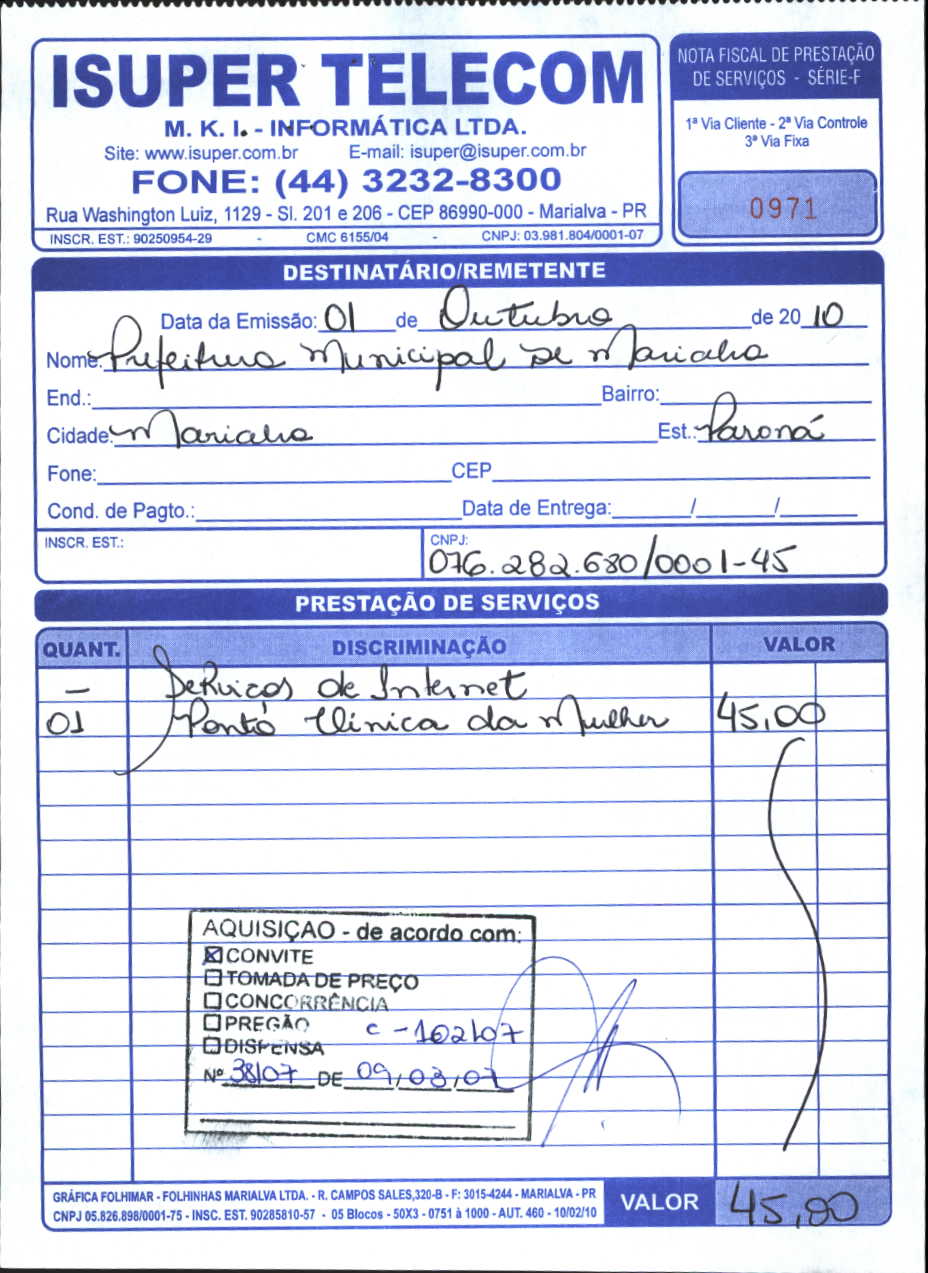 ISUPER TELECOM
M. K. I. - INFORMÁTICA LTDA.
Site: www.isuper.com.br E-mail: isuper@isuper.com.br
FONE: (44) 3232-8300
Rua Washington Luiz, 1129 - Sl. 201 e 206 - CEP 86990-000 - Marialva - PR
INSCR. EST.: 90250954-29 - CMC 6155/04 - CNPJ: 03.981.804/0001-07
NOTA FISCAL DE PRESTAÇÃO
DE SERVIÇOS - SÉRIE-F
1ª Via Cliente - 2ª Via Controle
3ª Via Fixa
0971
DESTINATÁRIO/REMETENTE
Data da Emissão: 01 de Outubro de 2010
Nome: Prefeitura Municipal de Marialva
End.: Bairro:
Cidade: Marialva Est.: Paraná
Fone: CEP
Cond. de Pagto.: Data de Entrega: / /
INSCR. EST.: CNPJ: 076.282.680/0001-45
PRESTAÇÃO DE SERVIÇOS
QUANT. DISCRIMINAÇÃO VALOR
- Serviços de Internet
01 Ponto Clinica da Mulher 45,00
AQUISIÇAO - de acordo com:
CONVITE
TOMADA DE PREÇO
CONCORRÊNCIA
PREGÃO C - 102/07
DISPENSA
Nº 38/07 DE 09/03/07
GRÁFICA FOLHIMAR - FOLHINHAS MARIALVA LTDA. - R. CAMPOS SALES,320-B - F: 3015-4244 - MARIALVA - PR
CNPJ 05.826.898/0001-75 - INSC. EST. 90285810-57 - 05 Blocos - 50X3 - 0751 à 1000 - AUT. 460 - 10/02/10
VALOR 45,00